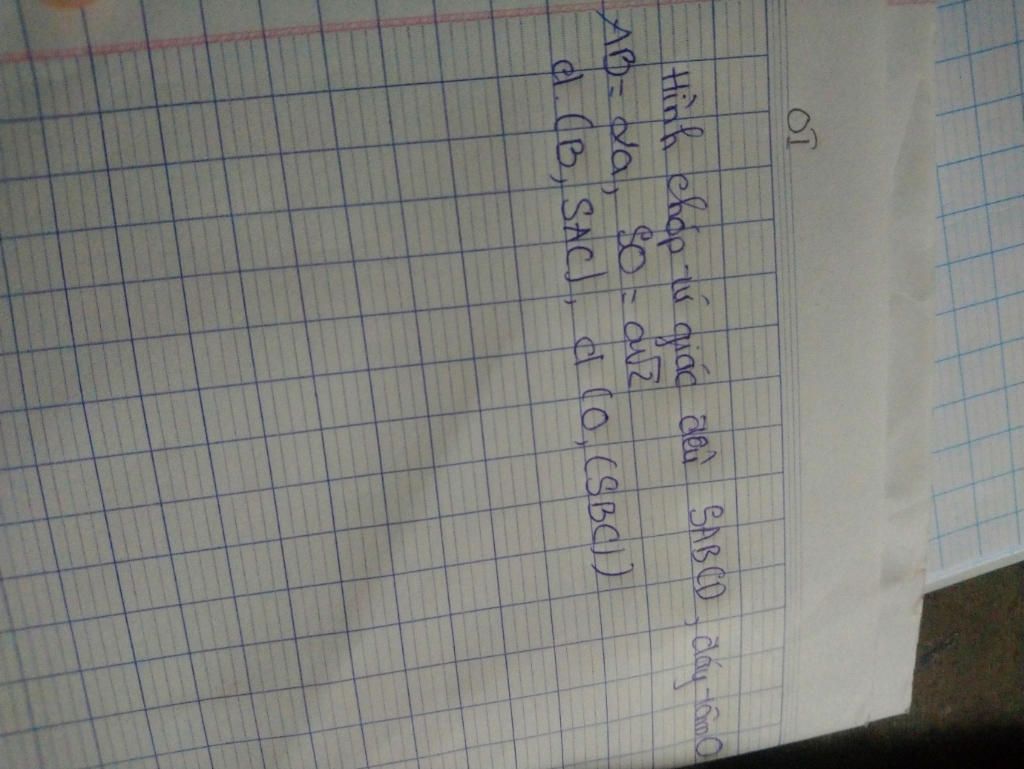 OT
Hình chóp tứ giác đều SABCD, đáy tâm O
AB = 2a, SO = a√2
d (B, SAC), d (O, (SBC))